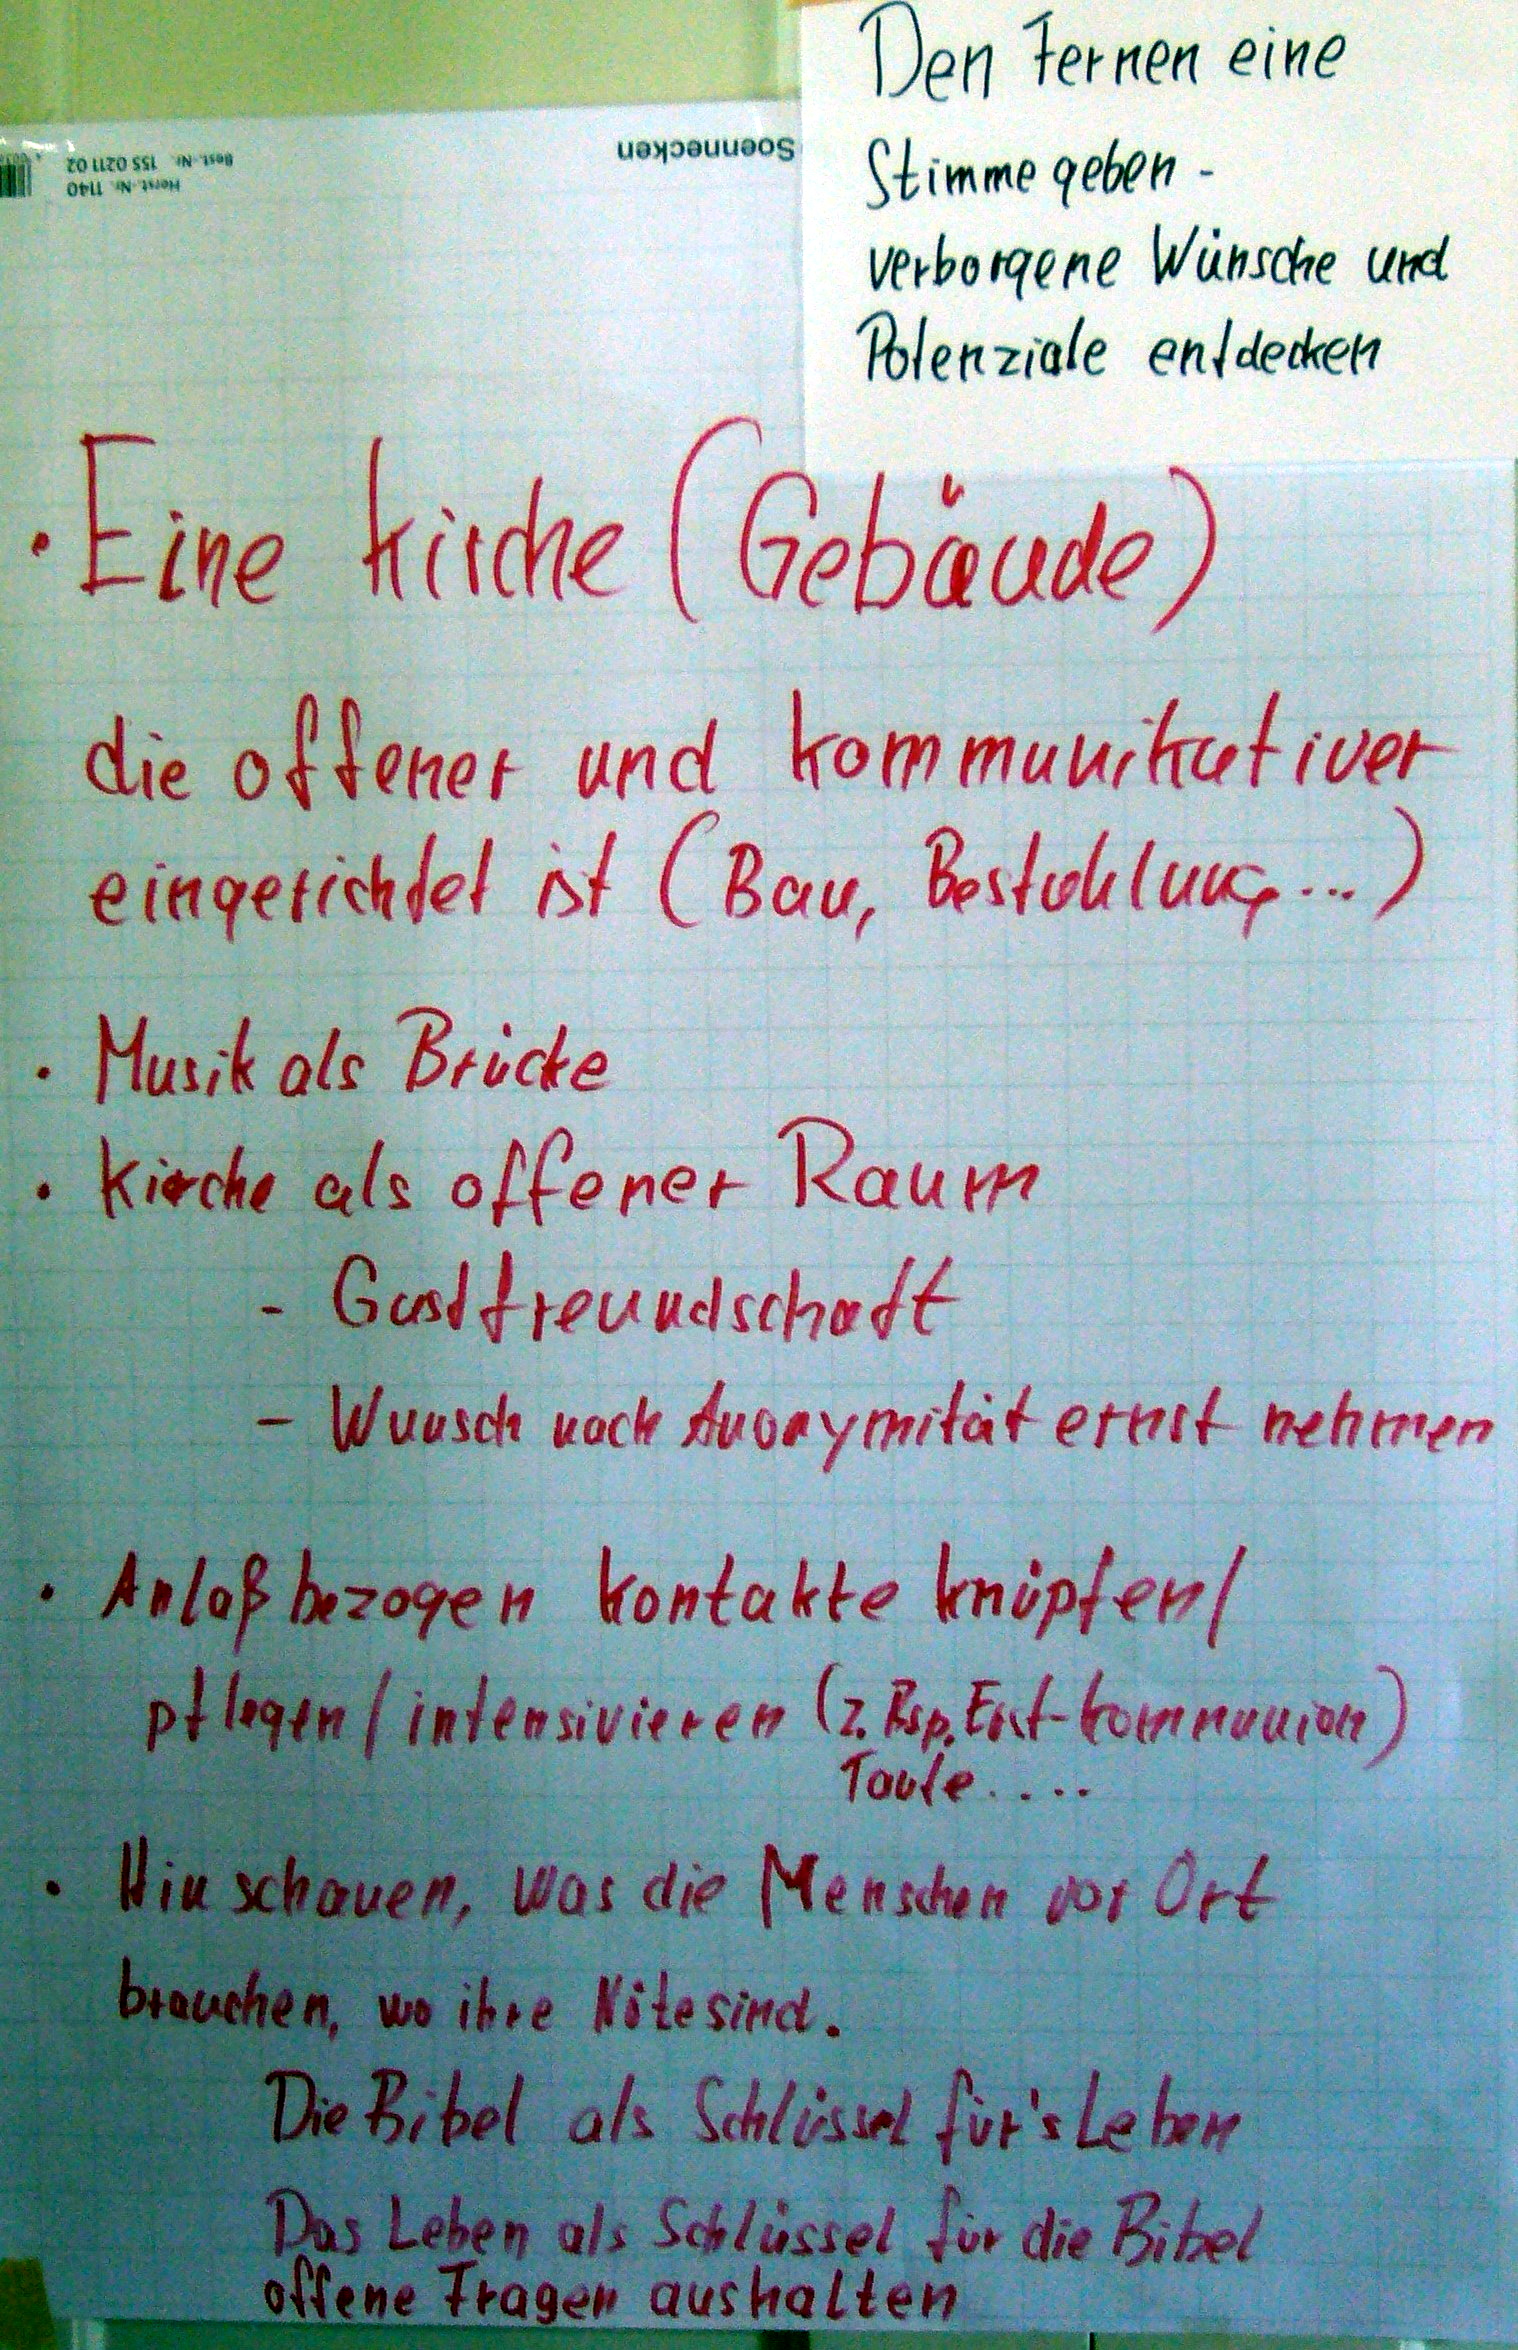 Den Fernen eine
Stimme geben -
verborgene Wünsche und
Potenziale entdecken
Soennecken
Best.-Nr. 155 0211 02
Herst.-Nr. 1140
· Eine Kirche (Gebäude)
die offener und kommunikativer
eingerichtet ist (Bau, Bestuhlung...)
· Musik als Brücke
· Kirche als offener Raum
- Gastfreundschaft
- Wunsch nach Anonymität ernst nehmen
· Anlaßbezogen Kontakte knüpfen/
pflegen/intensivieren (z. Bsp. Erst-Kommunion)
Taufe.....
· Hinschauen, was die Menschen vor Ort
brauchen, wo ihre Nöte sind.
Die Bibel als Schlüssel für's Leben
Das Leben als Schlüssel für die Bibel
offene Fragen aushalten